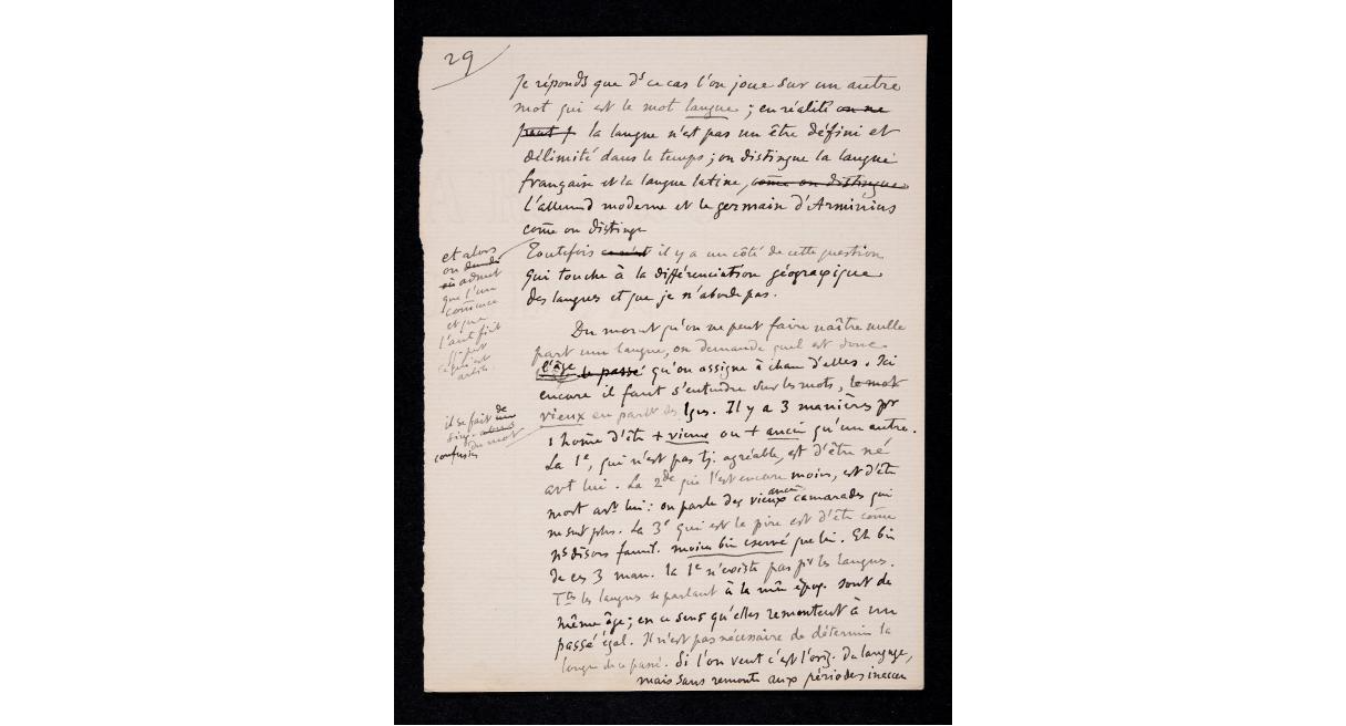 29
Je réponds que ds ce cas l'on joue sur un autre
mot qui est le mot langue ; en réalité on ne
peut la langue n'est pas un être défini et
délimité dans le temps ; on distingue la langue
française et la langue latine, come on distingue
l'allemd moderne et le germain d'Arminius
come on distinge
Toutefois il y a un côté de cette question
qui touche à la différenciation géograpique
des langues et que je n'aborde pas.
et alors
on
admet
que l'un
comence
et que
l'aut finit
Du momt qu'on ne peut faire naître nulle
part une langue, on demande quel est donc
l'âge le passé qu'on assigne à chacn d'elles. Ici
encore il faut s'entendre sur les mots, le mot
vieux en parlt des lgues. Il y a 3 manières pr
il se fait de
sing.
du mot
confusions
1 home d'êtr + vieux ou + ancien qu'un autre.
La 1e, qui n'est pas tj. agréable, est d'être né
avt lui. La 2de qui l'est encore moins, est d'êtr
mort avt lui : on parle des vieux anciens camarades qui
ne sont plus. La 3e qui est le pire est d'êtr come
ns disons famil. moins bien cservé que lui. Eh bien
de ces 3 man. la 1e n'existe pas pr les langues.
Ttes les langues se parlant à la mêm époq. sont de
même âge ; en ce sens qu'elles remontent à un
passé égal. Il n'est pas nécessaire de détermin la
longr de ce passé. Si l'on veut c'est l'orig. du langage,
mais sans remontr aux périodes inaccn